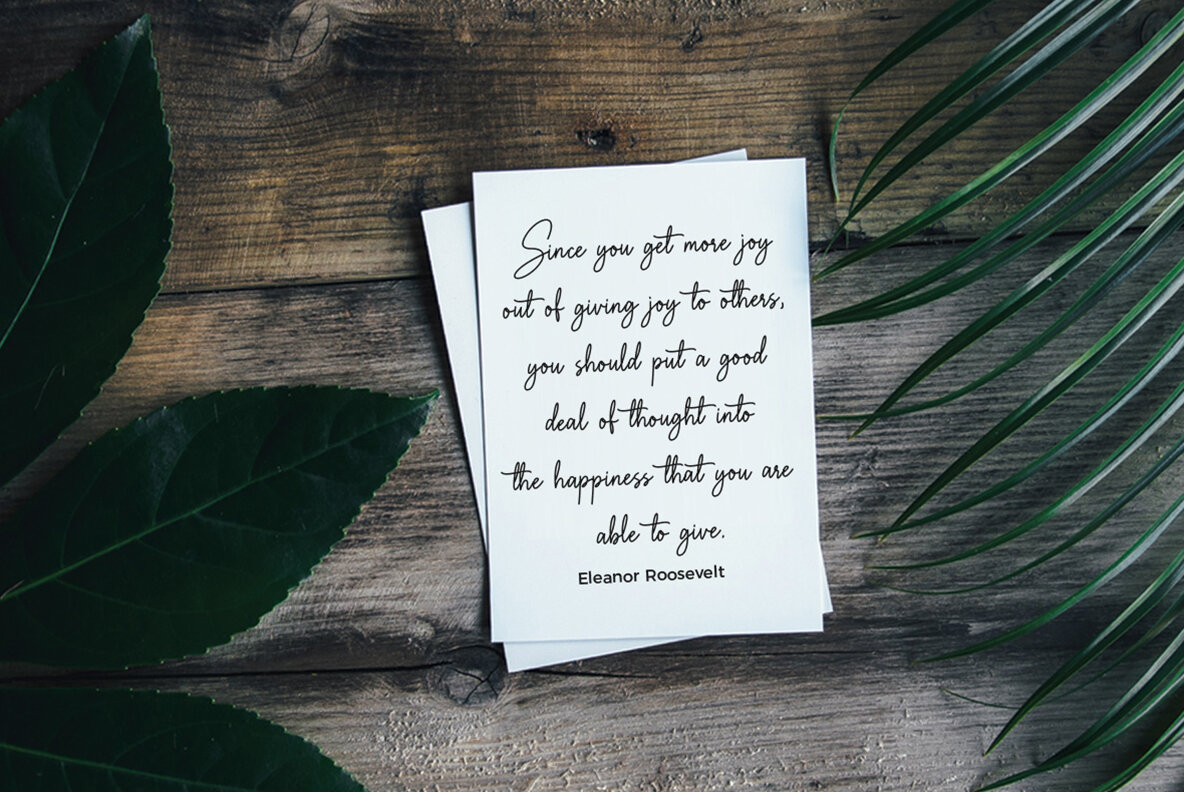 Since you get more joy
out of giving joy to others,
you should put a good
deal of thought into
the happiness that you are
able to give.
Eleanor Roosevelt